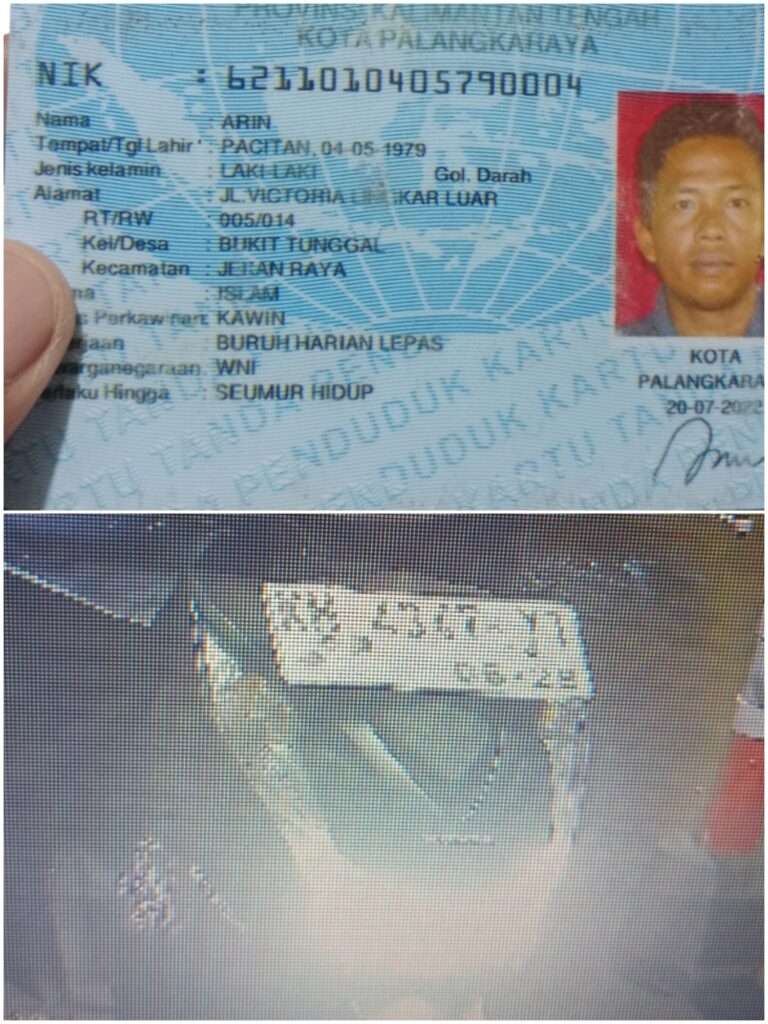 PROVINSI KALIMANTAN TENGAH
KOTA PALANGKARAYA
NIK : 6211010405790004
Nama : ARIN
Tempat/Tgl Lahir : PACITAN, 04-05-1979
Jenis kelamin : LAKI-LAKI Gol. Darah
Alamat : JL.VICTORIA LINGKAR LUAR
RT/RW : 005/014
Kel/Desa : BUKIT TUNGGAL
Kecamatan : JEKAN RAYA
ma : ISLAM
s Perkawinan: KAWIN
rjaan : BURUH HARIAN LEPAS
warganegaraan: WNI
erlaku Hingga : SEUMUR HIDUP
KOTA
PALANGKARA
20-07-2022
KARTU TANDA PENDUDUK
KH